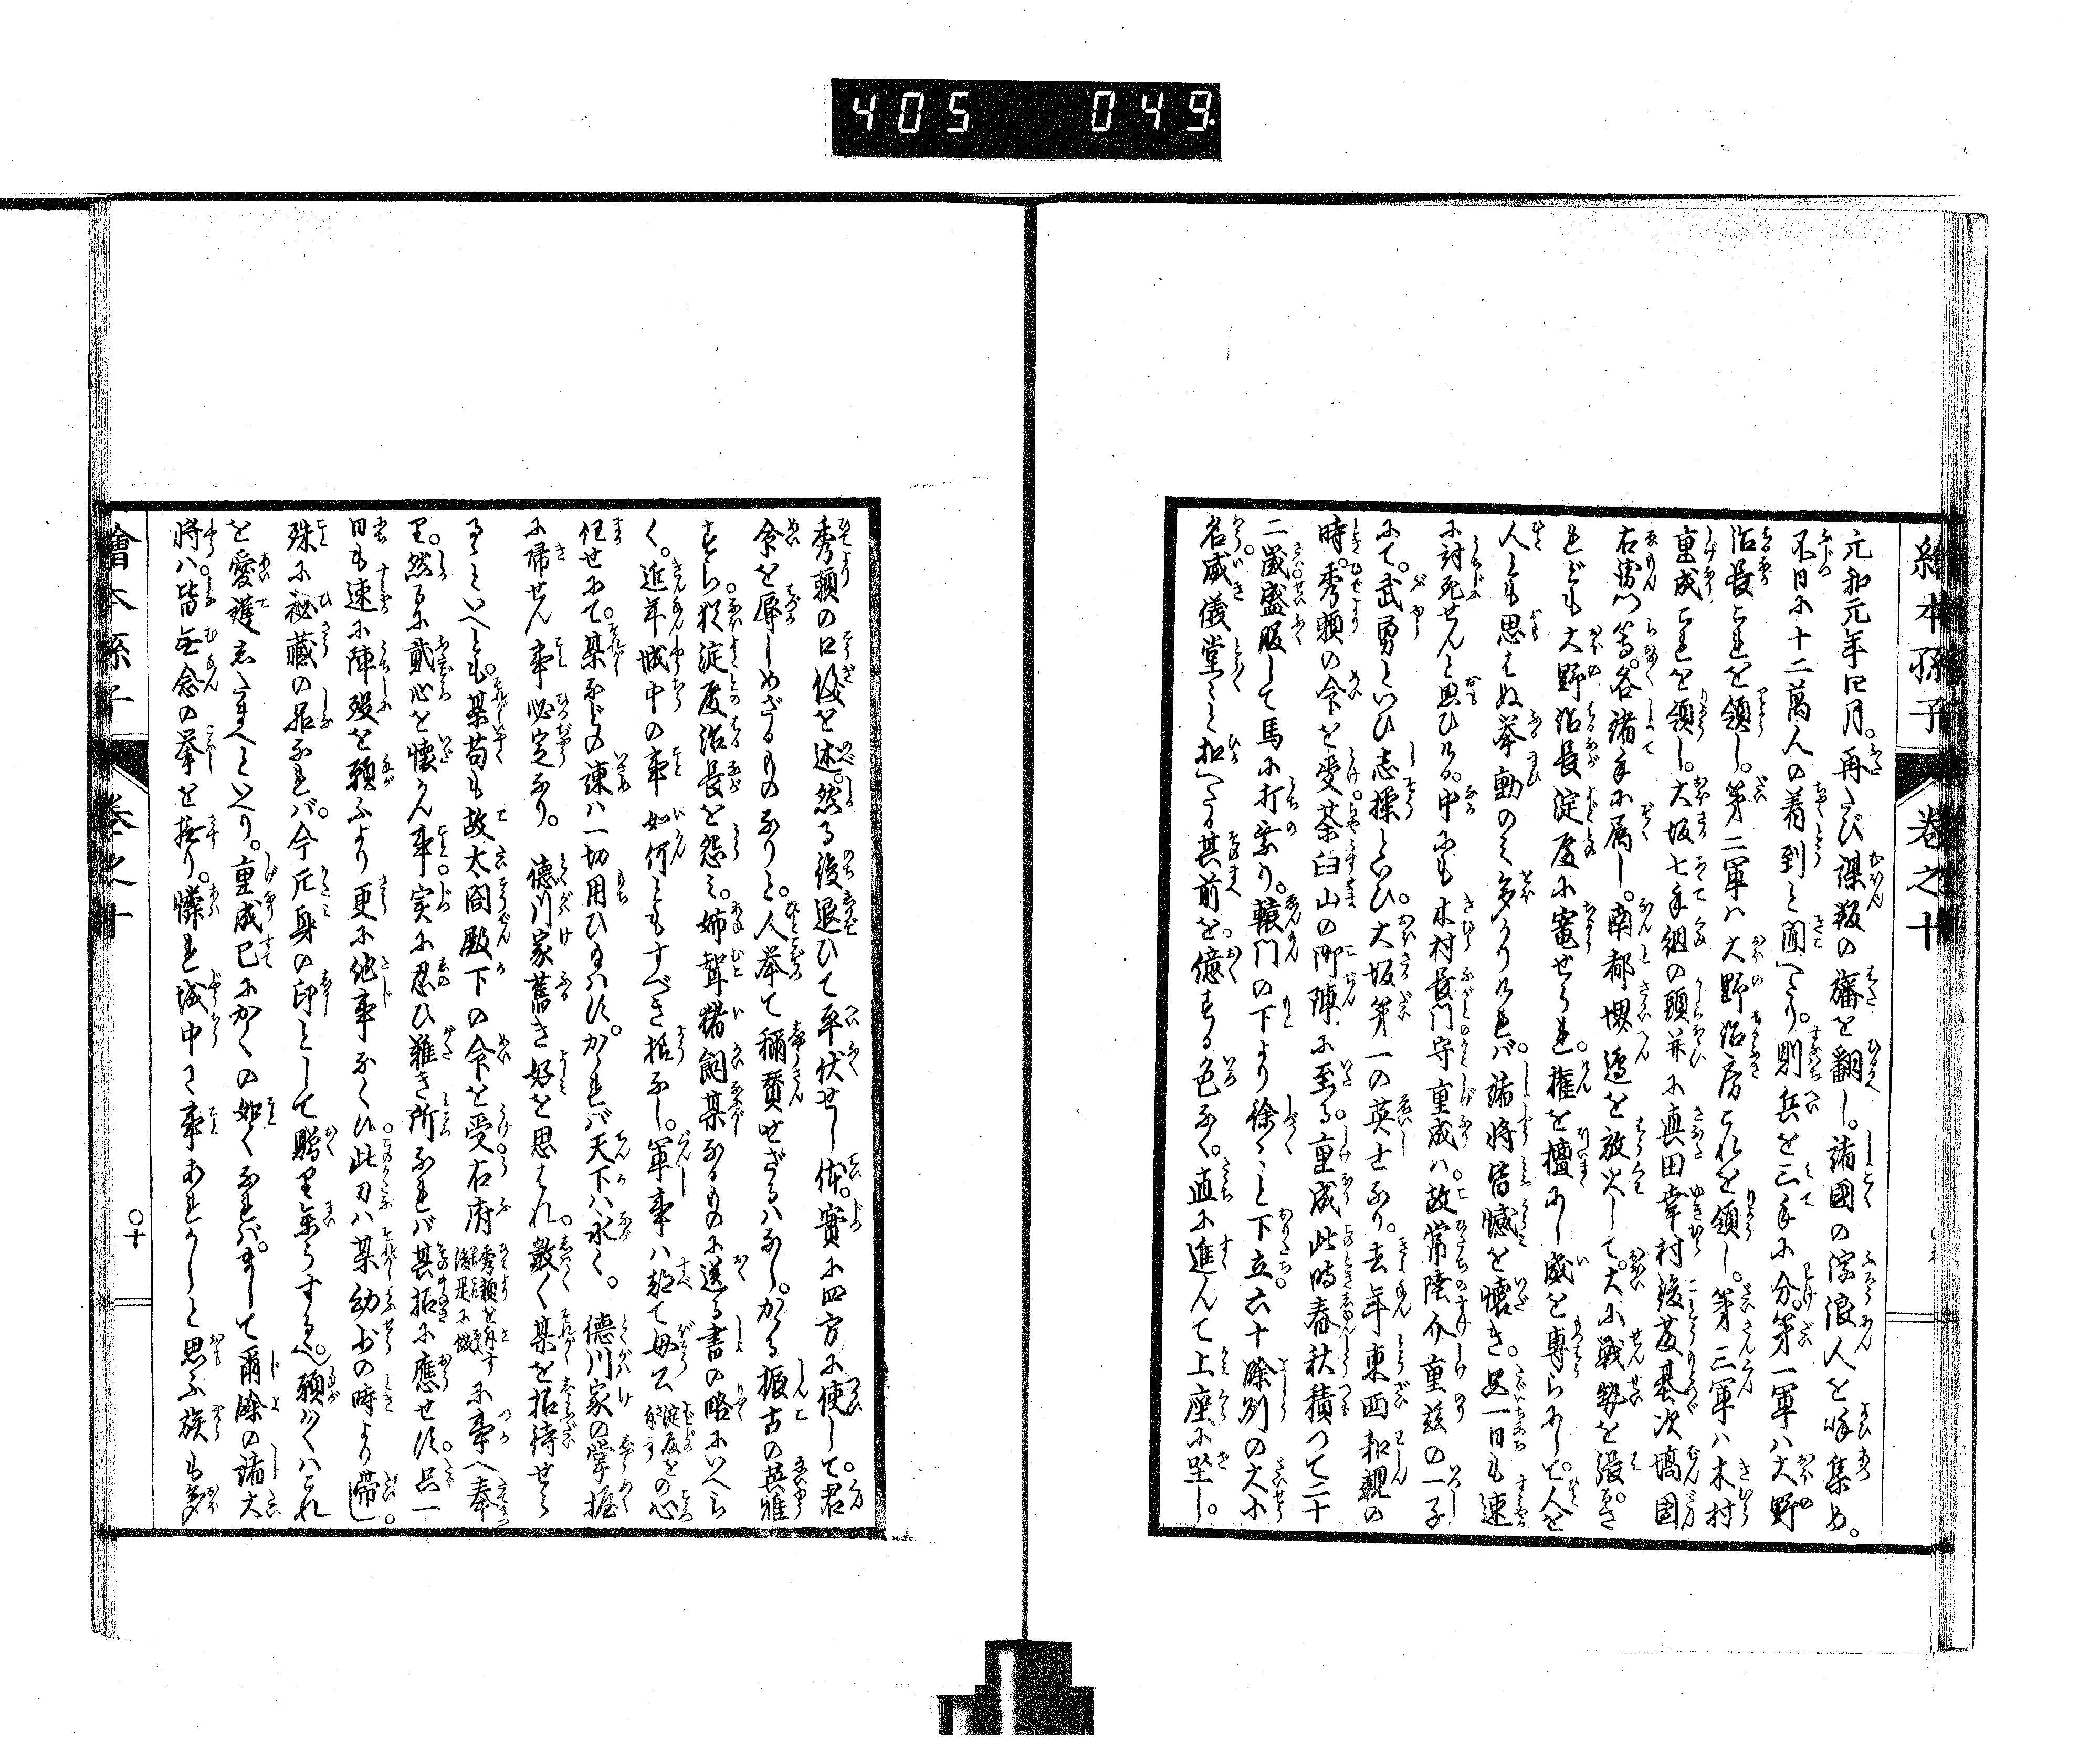 405 049
繪本孫子 卷之十
元和元年四月。再び謀叛の籏を翻し。諸國の浮浪人を呼集め。
不日に十二萬人の着到と聞へたり。則兵を三手に分。第一軍ハ大野
治長これを領し。第二軍ハ大野治房これを領し。第三軍ハ木村
重成これを領し。大坂七手組の頭并に真田幸村後藤基次塙団
右衛門等。各諸手に属し。南都堺邊を放火して。大に戦勢を張る。され
ども大野治長淀殿に寵せられ。権を擅にし威を専らにして。人を
人とも思はぬ挙動のミ多かりけれバ。諸将皆憾を懐き。只一日も速
に討死せんと思ひける。中にも木村長門守重成ハ。故常陸介重茲の一子
にて。武勇といひ志操といひ。大坂第一の英士なり。去年東西和親の
時。秀頼の令を受。茶臼山の御陣に至る。重成此時春秋積つて二十
二歳盛服して馬に打乗り。轅門の下より徐々と下立。六十餘列の大小
名威儀堂々と扣へたる其前を。憶する色なく。直に進んて上座に坐し。
秀頼の口役を述。然る後退ひて平伏せし体。實に四方に使して。君
命を辱しめざるものなりと。人挙て稱賛せざるハなし。かゝる振古の英雄
すら。猶淀殿治長を怨ミ。姉聟猪飼某なるものに送る書の略にいへら
く。近年城中の事如何ともすべき拠なし。軍事ハ都て母公淀殿をの心
任せにて。某などの諫ハ一切用ひ給ハず。かゝれバ天下ハ永く。徳川家の掌握
に帰せん事必定なり。徳川家舊き好を思はれ。數々某を招待せら
るゝといへとも。某苟も故太閤殿下の令を受右府秀頼を斥す後是に倣に事へ奉
り。然るに貳心を懐かん事。実に忍ひ難き所なれバ其招に應せず。只一
日も速に陣没を願ふより更に他事なく候此刀ハ某幼少の時より帯し。
殊に秘蔵の品なれバ。今斤身の印として贈り参らするべし。願くハこれ
を愛護したまへといへり。重成已にかくの如くなれバ。まして爾餘の諸大
将ハ。皆無念の拳を握り。憐れ城中に事あれかしと思ふ族も多
繪本孫子 卷之十
〇十